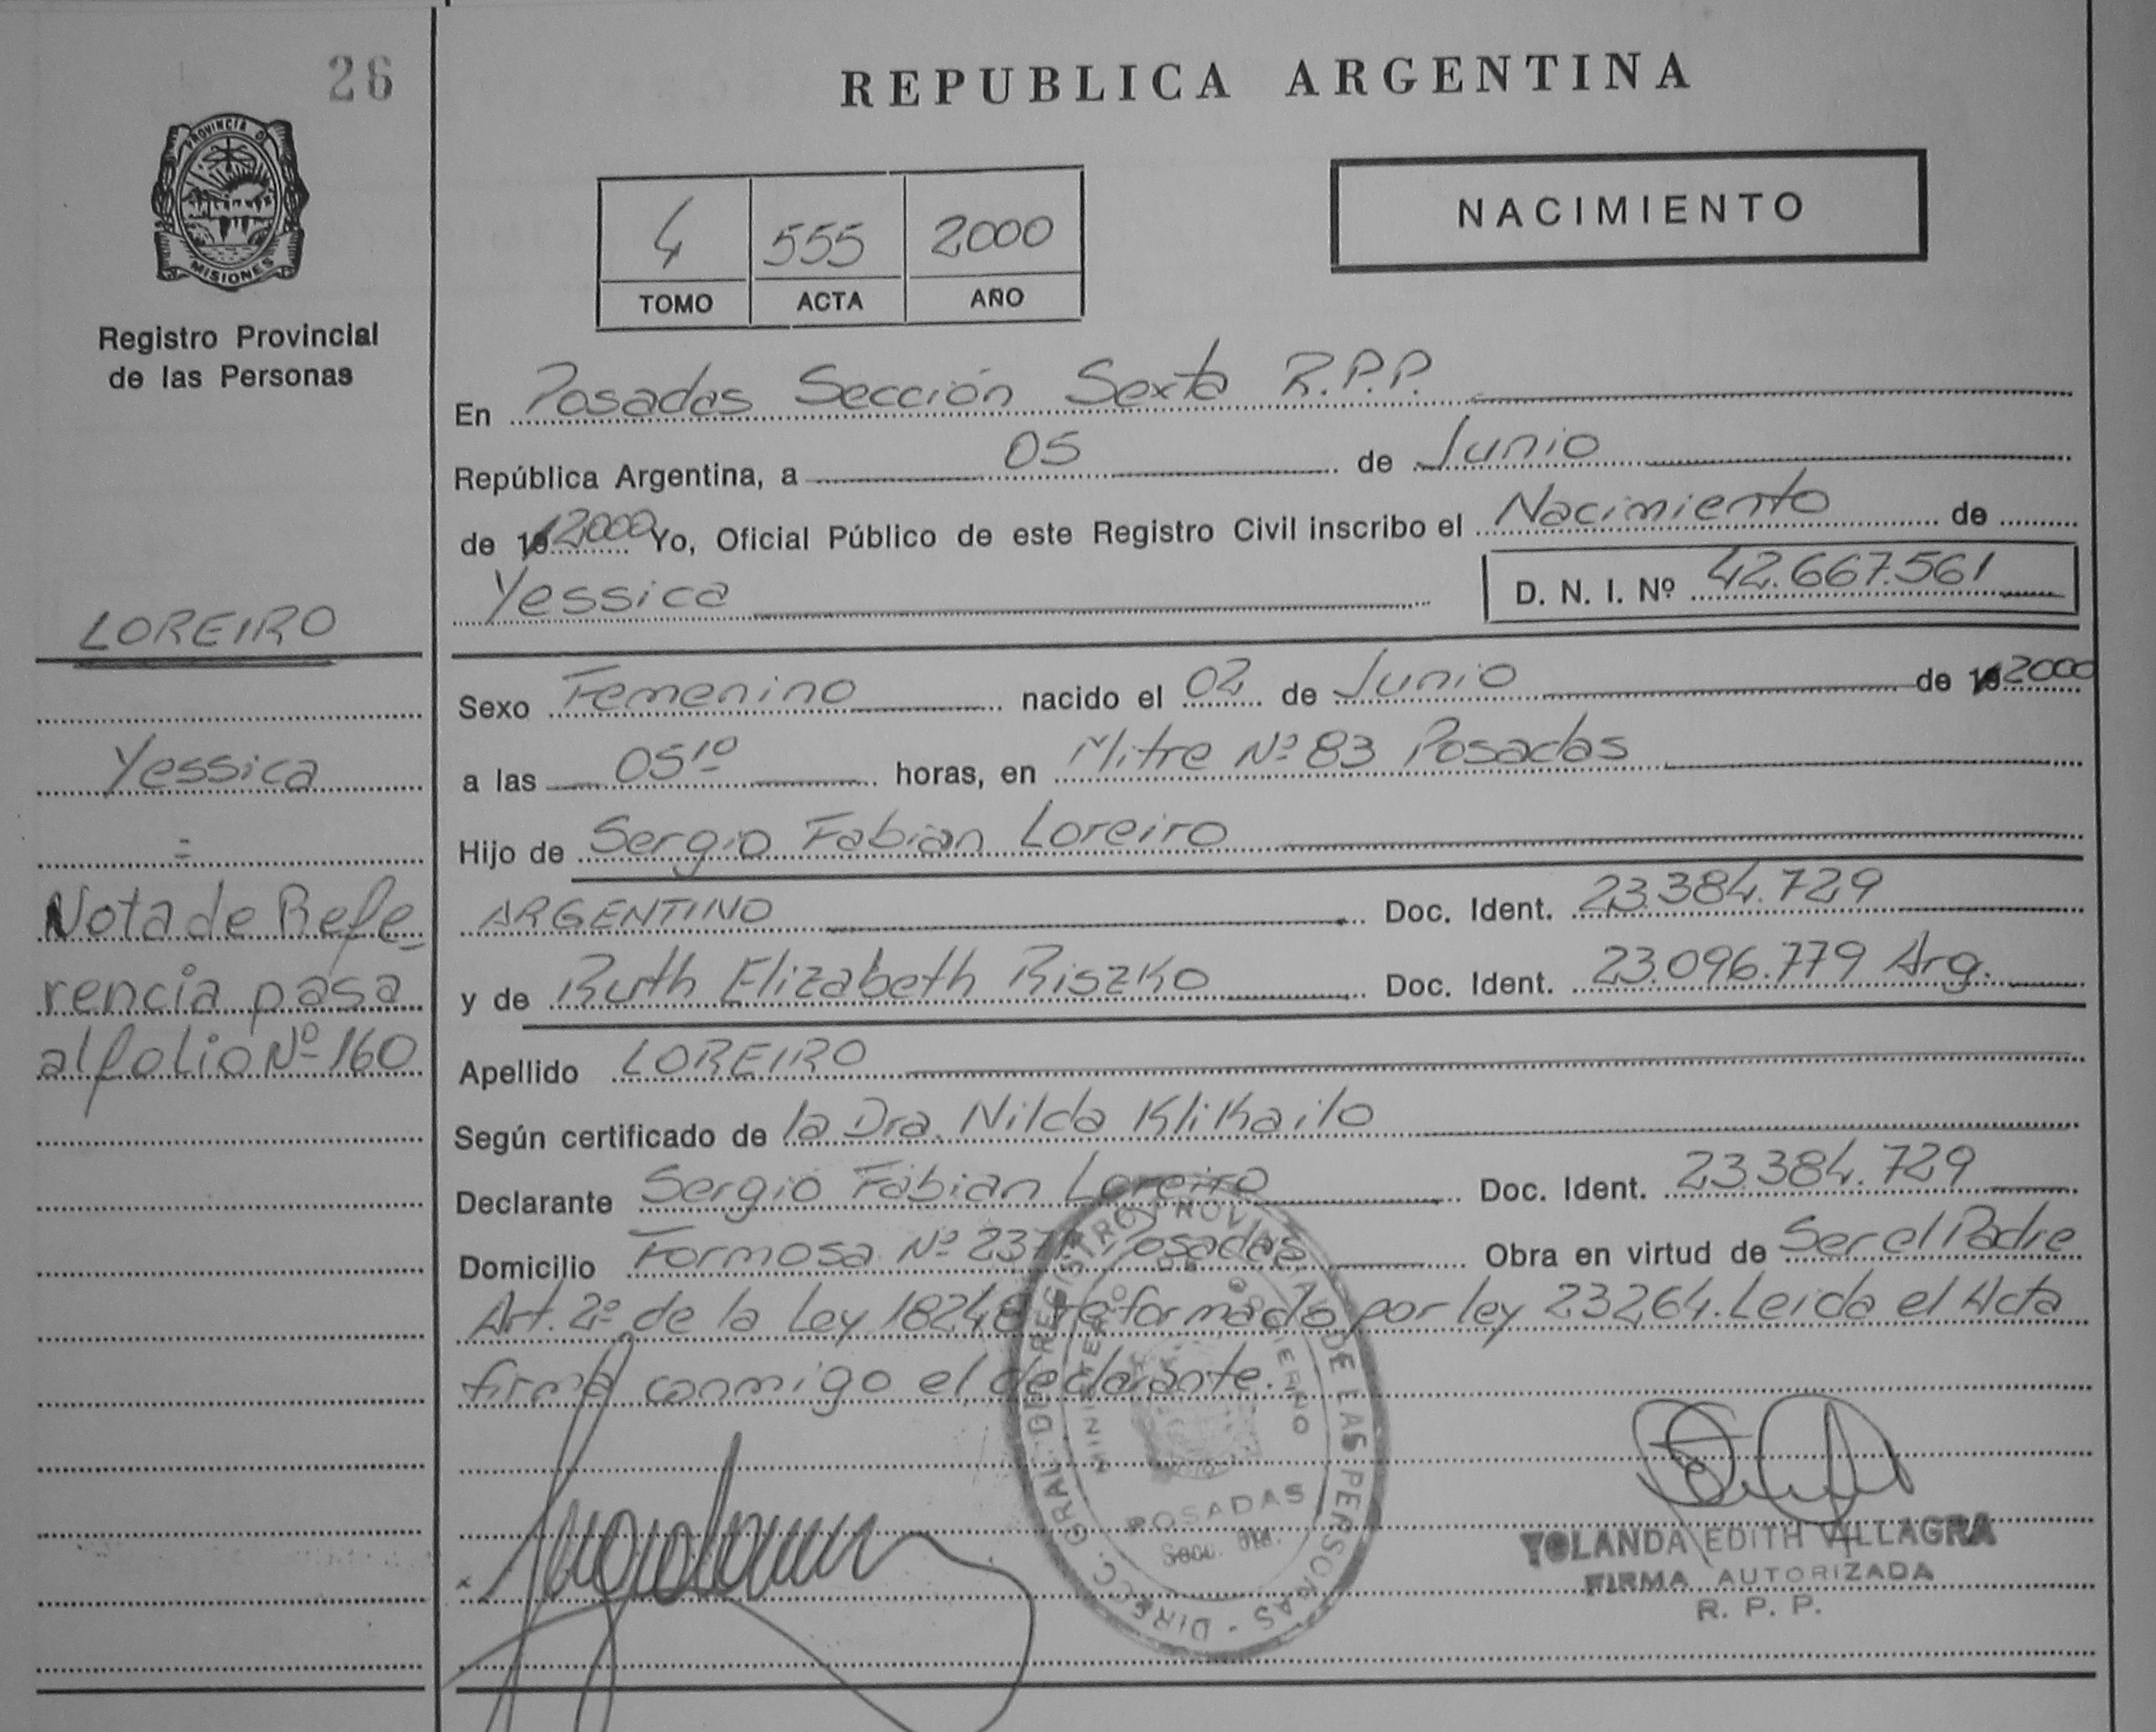 26
PROVINCIA DE
MISIONES
Registro Provincial
de las Personas
LOREIRO
Yessica
=
Nota de Refe-
rencia pasa
al folio Nº 160
REPUBLICA ARGENTINA
4 555 2000
TOMO ACTA AÑO
NACIMIENTO
En Posadas Sección Sexta R.P.P.
República Argentina, a 05 de Junio
de 19 2000 Yo, Oficial Público de este Registro Civil inscribo el Nacimiento de
Yessica D. N. I. Nº 42.667.561
Sexo Femenino nacido el 02 de Junio de 19 2000
a las 05¹⁰ horas, en Mitre Nº 83 Posadas
Hijo de Sergio Fabian Loreiro
ARGENTINO Doc. Ident. 23.384.729
y de Ruth Elizabeth Riszko Doc. Ident. 23.096.779 Arg.
Apellido LOREIRO
Según certificado de la Dra. Nilda Klikailo
Declarante Sergio Fabian Loreiro Doc. Ident. 23.384.729
Domicilio Formosa Nº Posadas Obra en virtud de Ser el Padre
Art. 2º de la Ley 18248 reformado por ley 23264. Leida el Acta
firma conmigo el declarante.
DIRECC. GRAL. DEL REGISTRO PROVINCIAL DE LAS PERSONAS
MINISTERIO DE GOBIERNO
POSADAS
YOLANDA EDITH VILLAGRA
FIRMA AUTORIZADA
R. P. P.